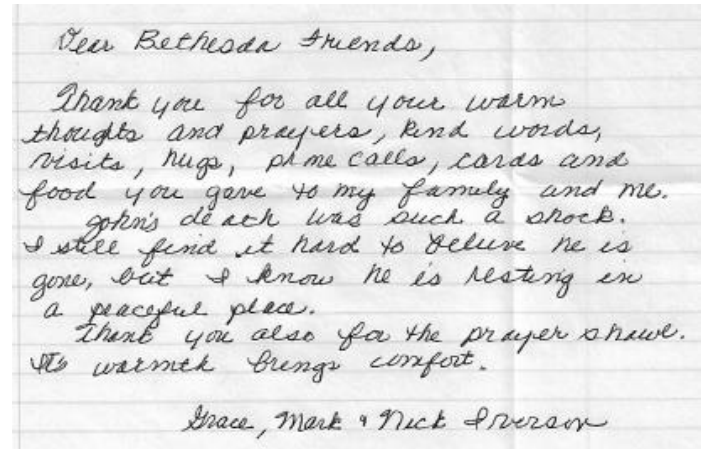 Dear Bethesda Friends,
Thank you for all your warm
thoughts and prayers, kind words,
visits, hugs, phone calls, cards and
food you gave to my family and me.
John's death was such a shock.
I still find it hard to believe he is
gone, but I know he is resting in
a peaceful place.
Thank you also for the prayer shawl.
It's warmth brings comfort.
Grace, Mark & Nick Iverson